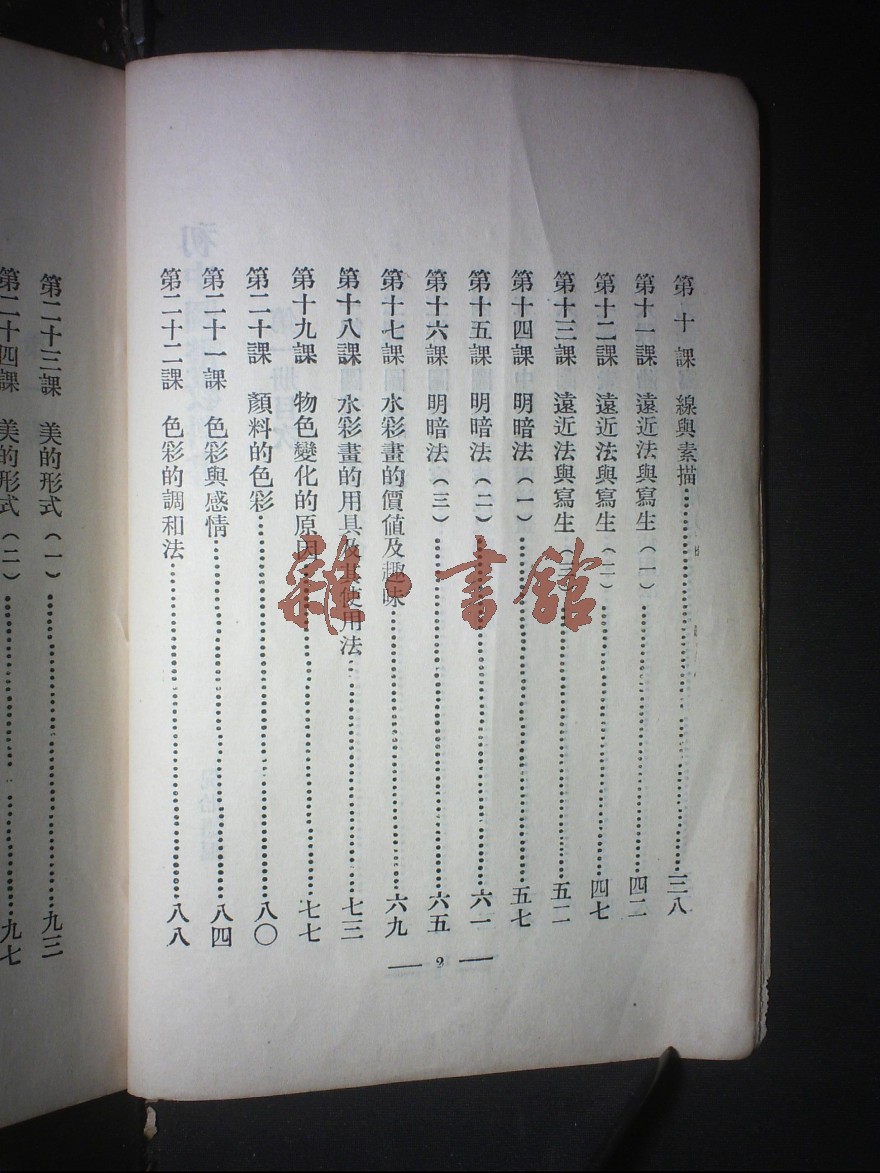 第十課 線與素描……三八
第十一課 遠近法與寫生(一)……四二
第十二課 遠近法與寫生(二)……四七
第十三課 遠近法與寫生(三)……五二
第十四課 明暗法(一)……五七
第十五課 明暗法(二)……六一
第十六課 明暗法(三)……六五
第十七課 水彩畫的價値及趣味……六九
第十八課 水彩畫的用具及其使用法……七三
第十九課 物色變化的原因……七七
第二十課 顏料的色彩……八〇
第二十一課 色彩與感情……八四
第二十二課 色彩的調和法……八八
— 2 —
第二十三課 美的形式(一)……九三
第二十四課 美的形式(二)……九七
雜·書館